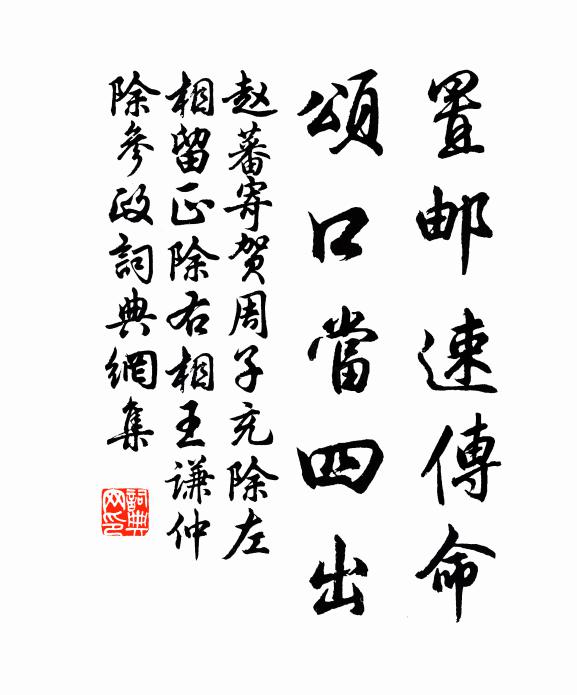 置邮速傳命
頌口當四出
赵蕃寄贺周子充除左
相留正除右相王谦仲
除參政詞典網集
詞典网印